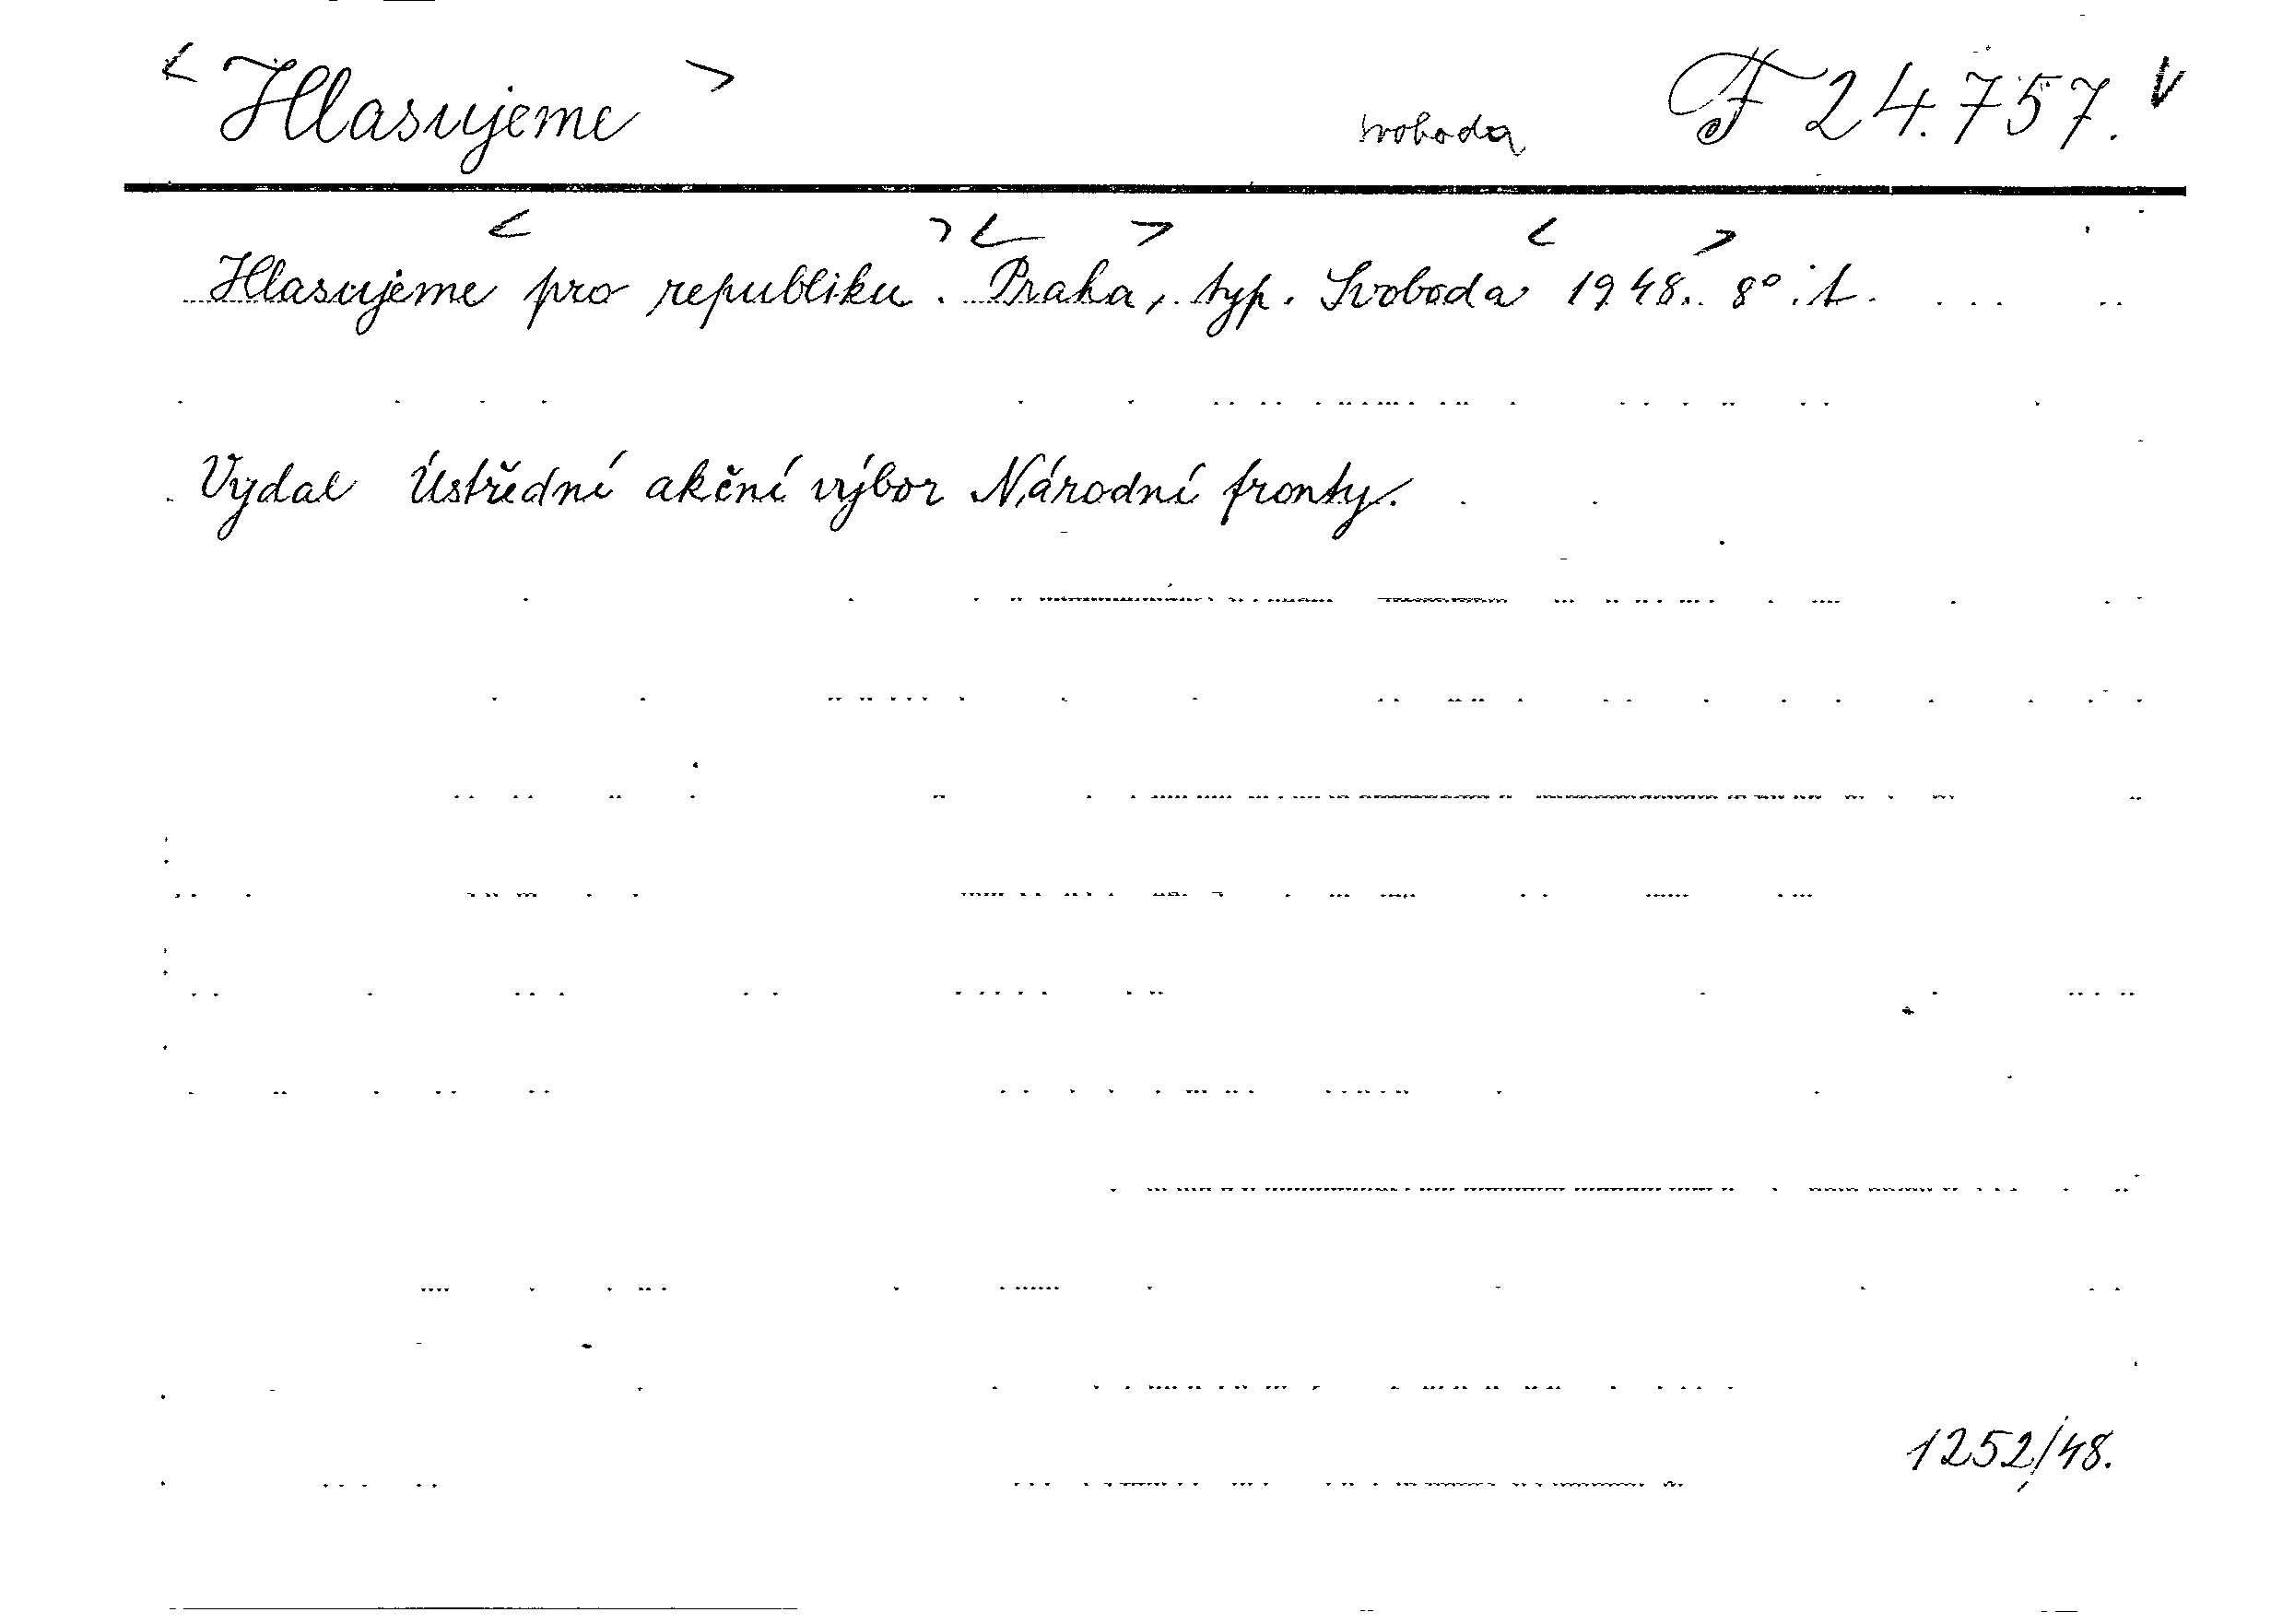 < Hlasujeme > svoboda F 24.757. V
< > < > < >
Hlasujeme pro republiku. Praha, typ. Svoboda 1948. 8°. 1.
Vydal Ústřední akční výbor Národní fronty.
1252/48.